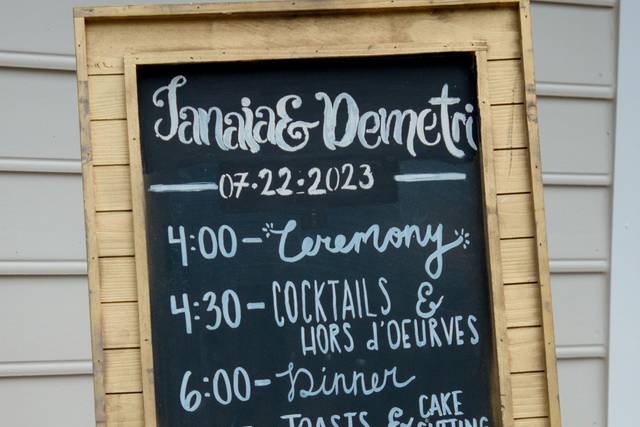 Janaia & Demetri
07.22.2023
4:00 - Ceremony
4:30 - COCKTAILS &
HORS d'OEURVES
6:00 - Dinner
TOASTS & CAKE
CUTTING